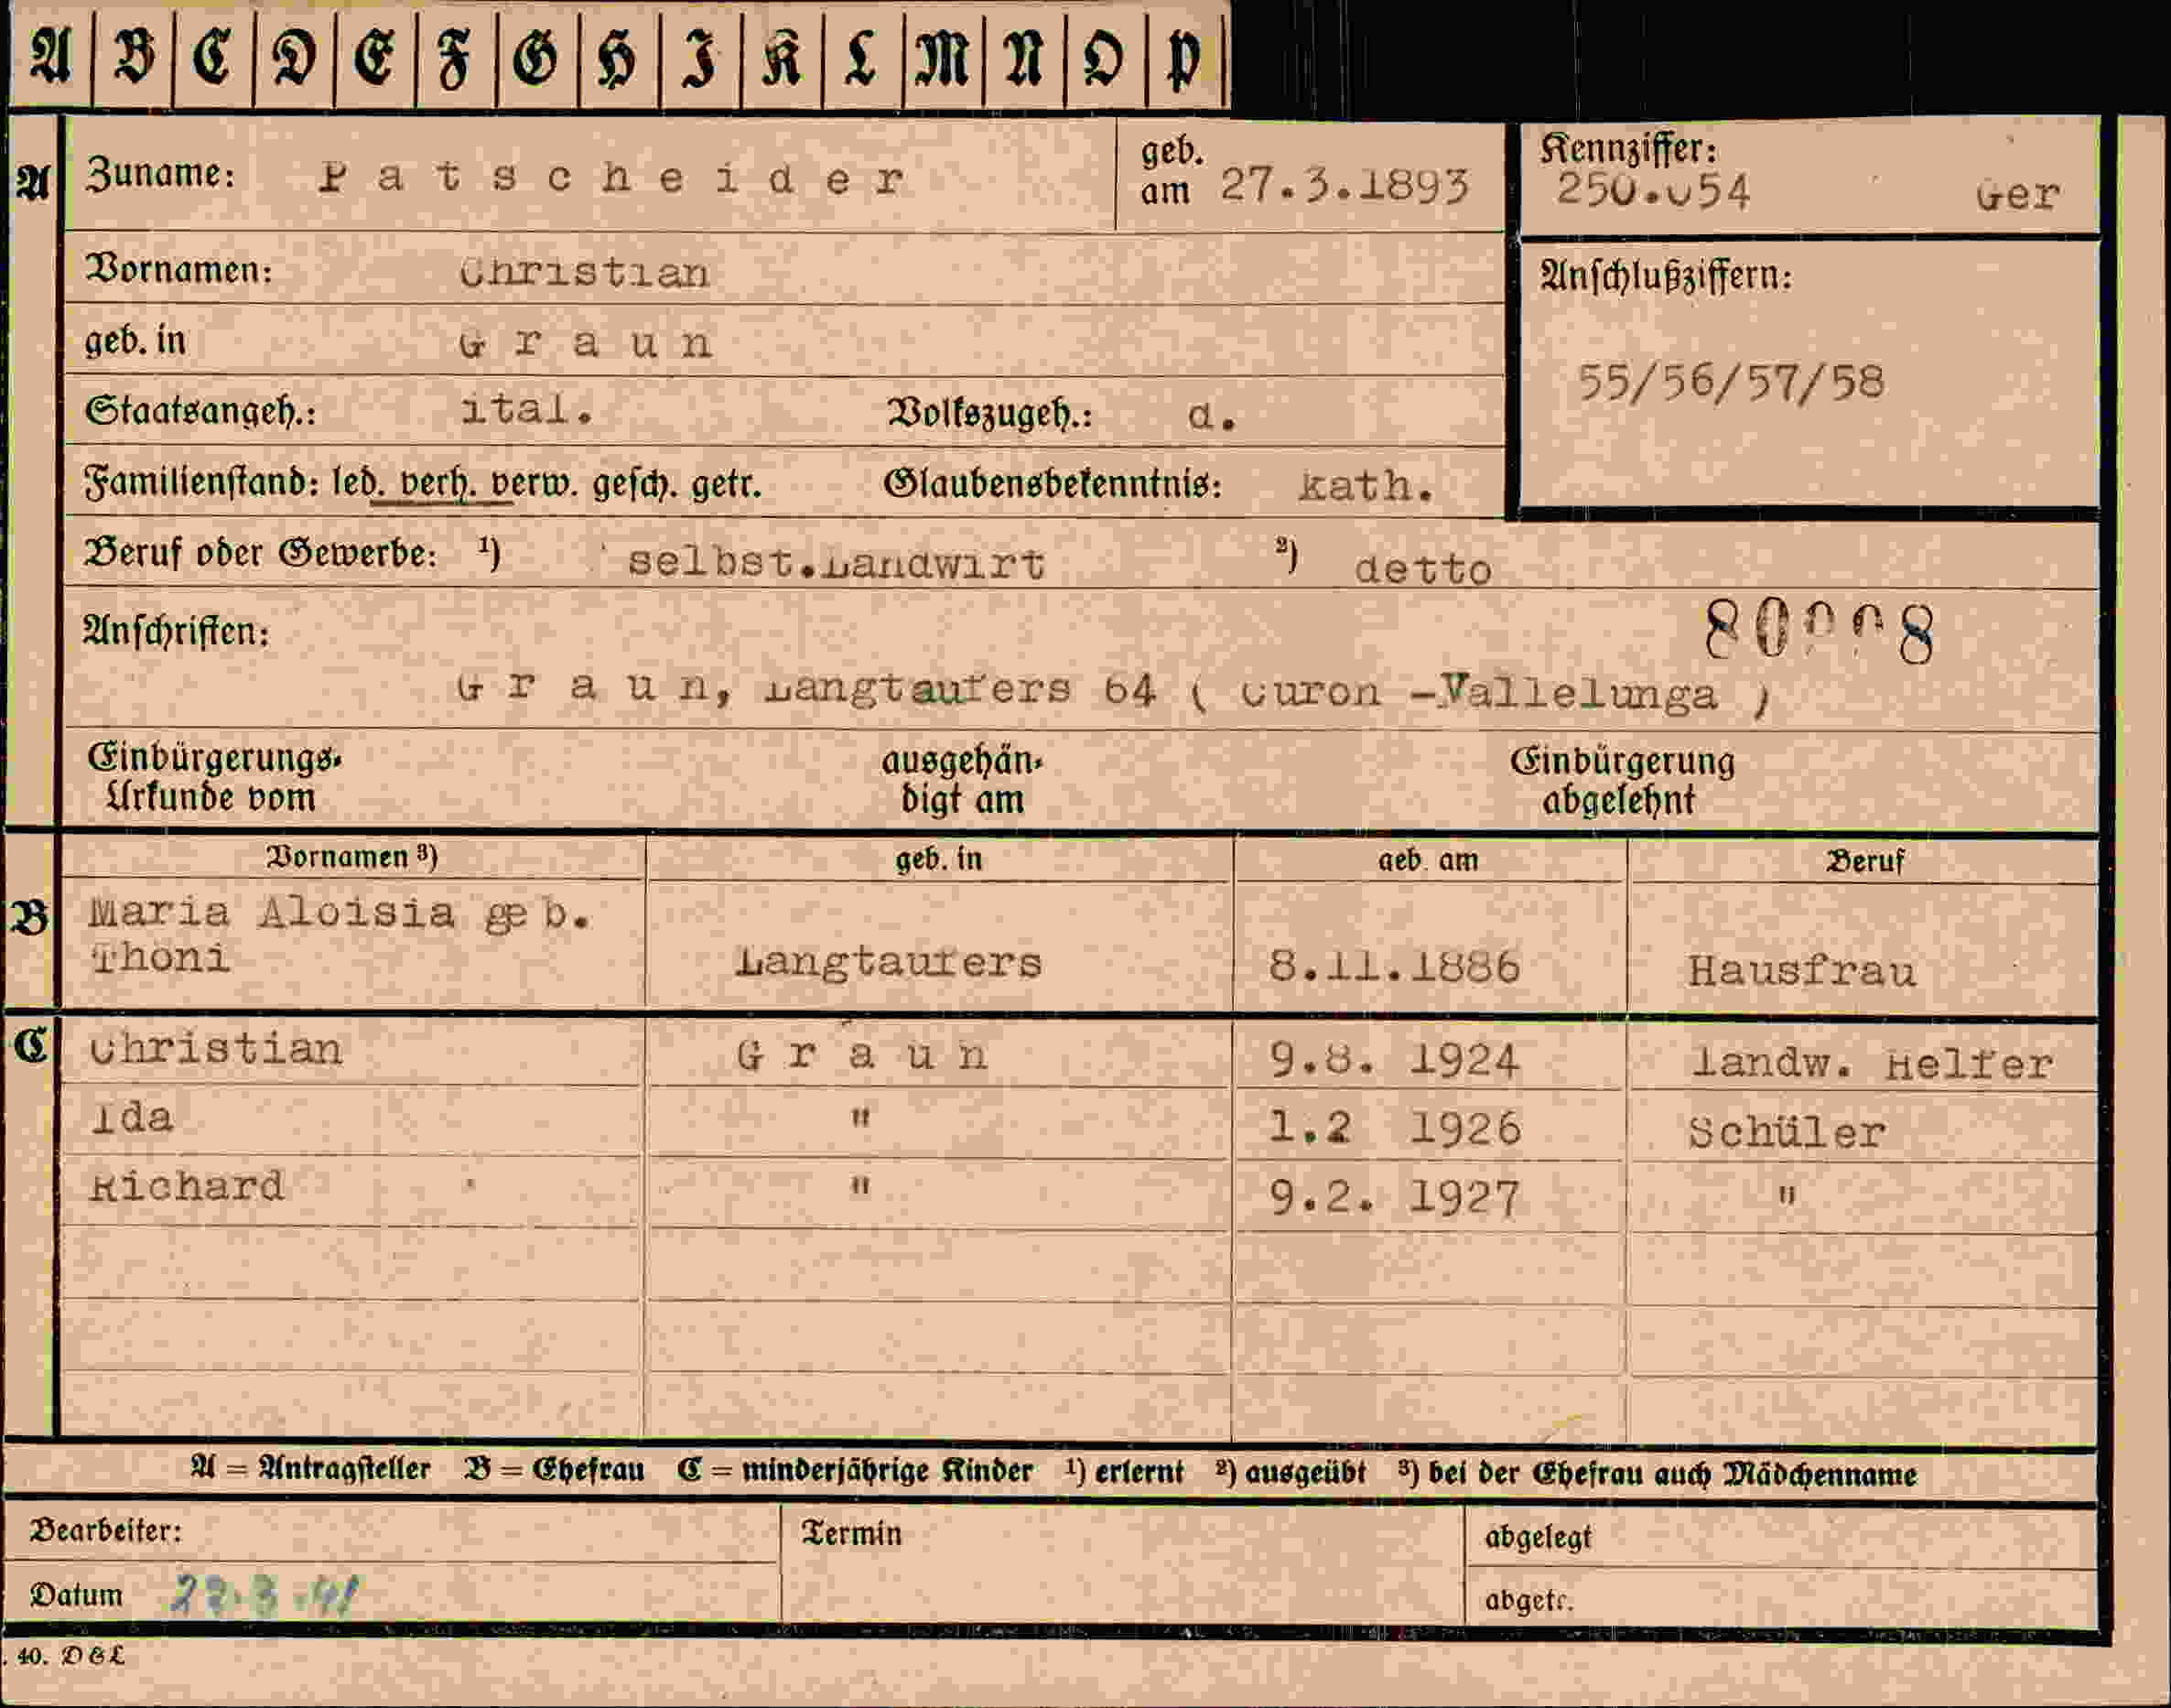 A B C D E F G H I K L M N O P
A Zuname: Patscheider geb. am 27.3.1893 Kennziffer: 250.054 Ger
Vornamen: Christian Anschlußziffern:
geb. in Graun
55/56/57/58
Staatsangeh.: ital. Volkszugeh.: d.
Familienstand: led. verh. verw. gesch. getr. Glaubensbekenntnis: kath.
Beruf oder Gewerbe: ¹) selbst.Landwirt ²) detto
Anschriften:
Graun, Langtaufers 64 ( Curon -Vallelunga )
Einbürgerungs- ausgehän- Einbürgerung
Urkunde vom digt am abgelehnt
Vornamen ³) geb. in geb. am Beruf
B Maria Aloisia geb.
Thöni Langtaufers 8.11.1886 Hausfrau
C Christian Graun 9.8. 1924 landw. Helfer
Ida " 1.2 1926 Schüler
Richard " 9.2. 1927 "
A = Antragsteller B = Ehefrau C = minderjährige Kinder ¹) erlernt ²) ausgeübt ³) bei der Ehefrau auch Mädchenname
Bearbeiter: Termin abgelegt
Datum abgetr.
. 40. D&L